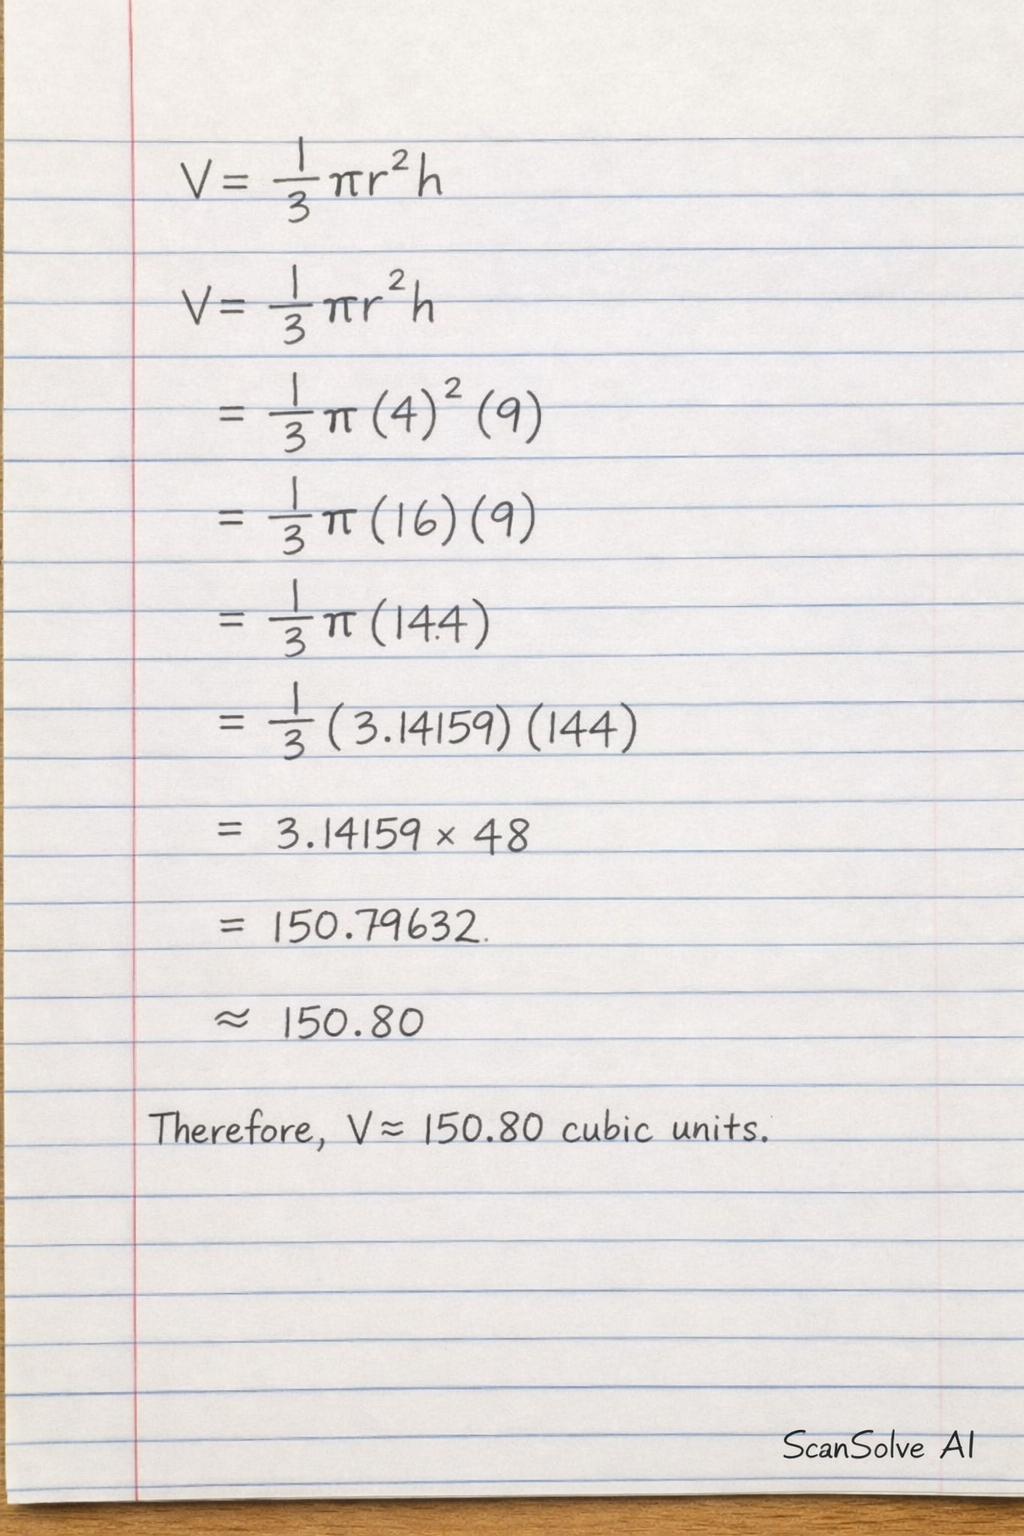 V = 1/3 πr²h
V = 1/3 πr²h
= 1/3 π (4)² (9)
= 1/3 π (16) (9)
= 1/3 π (14.4)
= 1/3 (3.14159) (144)
= 3.14159 × 48
= 150.79632.
≈ 150.80
Therefore, V ≈ 150.80 cubic units.
ScanSolve AI